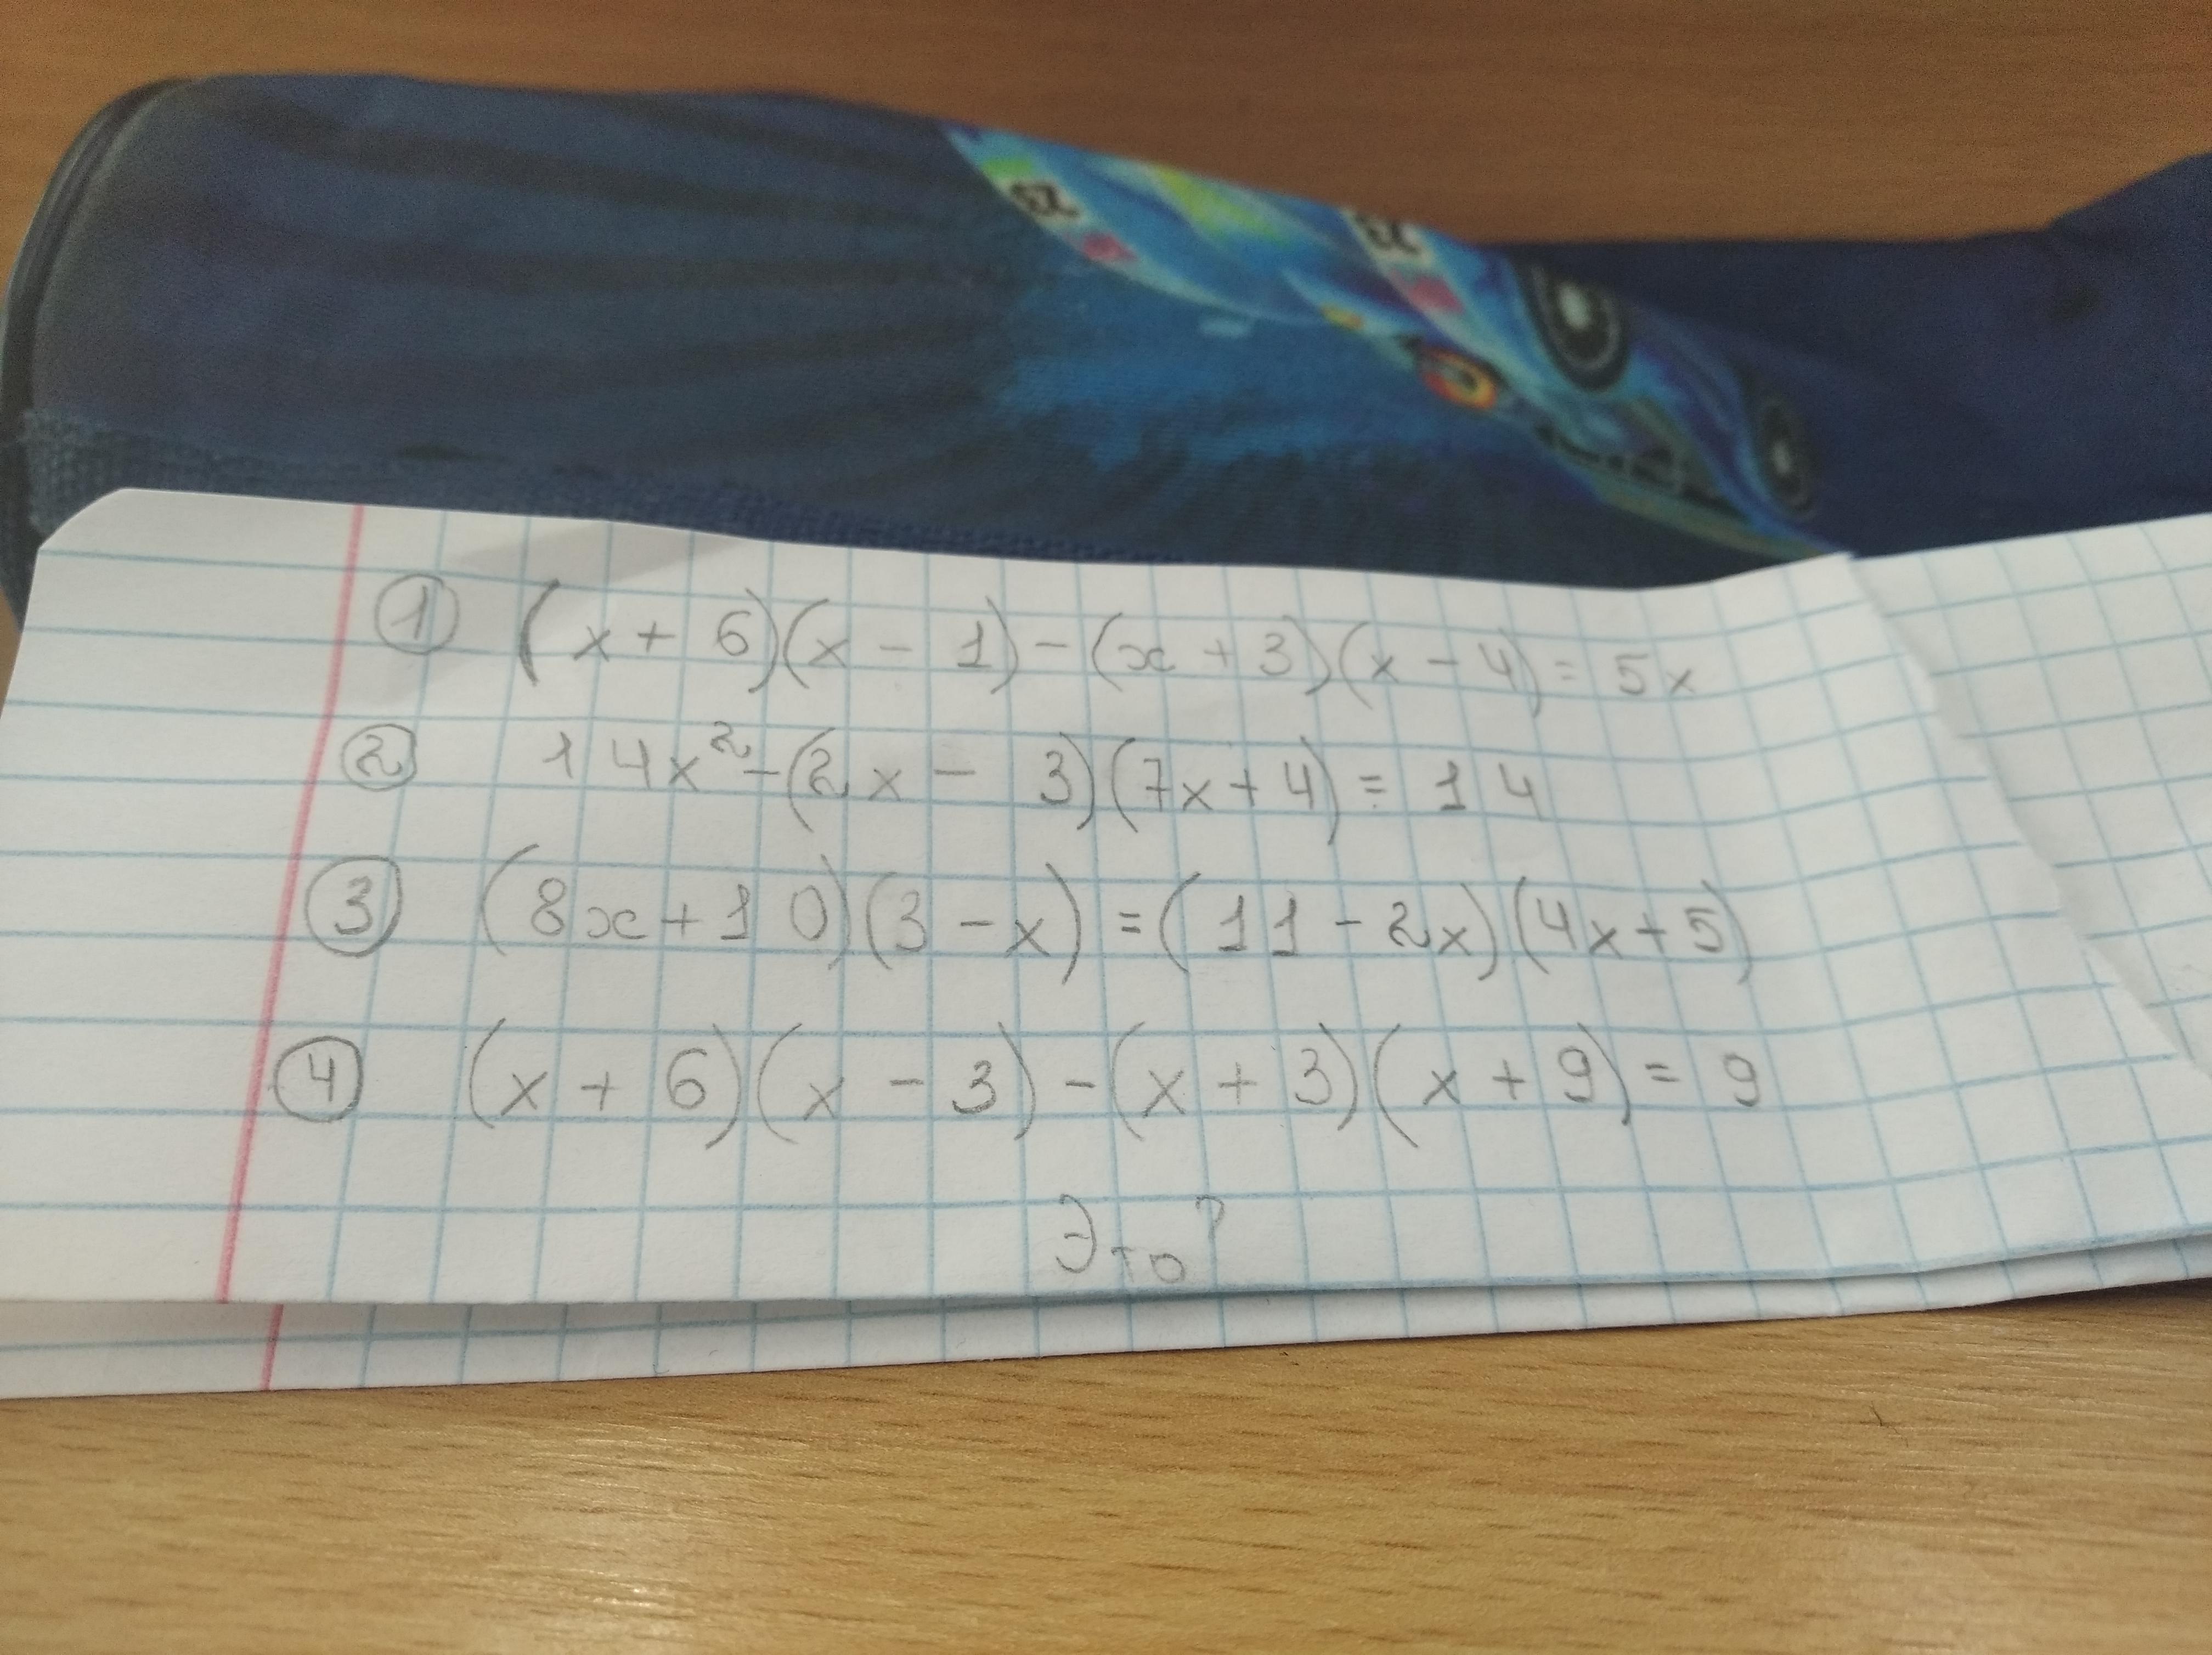 ① (x + 6)(x - 1) - (x + 3)(x - 4) = 5x
② 14x² - (2x - 3)(7x + 4) = 14
③ (8x + 10)(3 - x) = (11 - 2x)(4x + 5)
④ (x + 6)(x - 3) - (x + 3)(x + 9) = 9
Это?